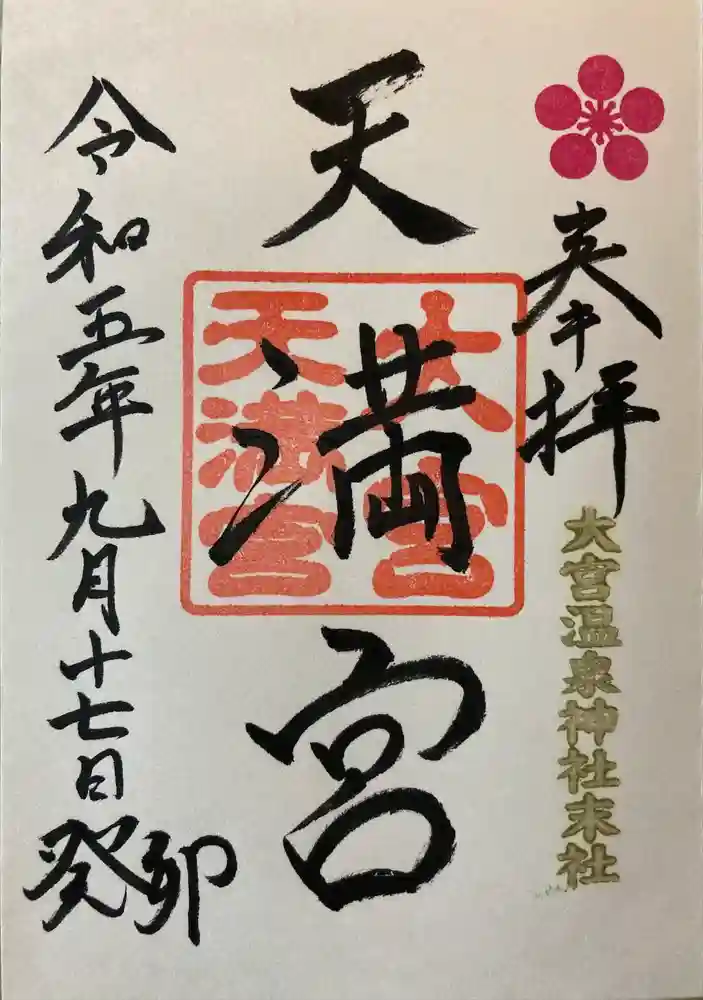 奉拝
大宮温泉神社末社
天満宮
大宮
天満宮
令和五年九月十七日
癸卯